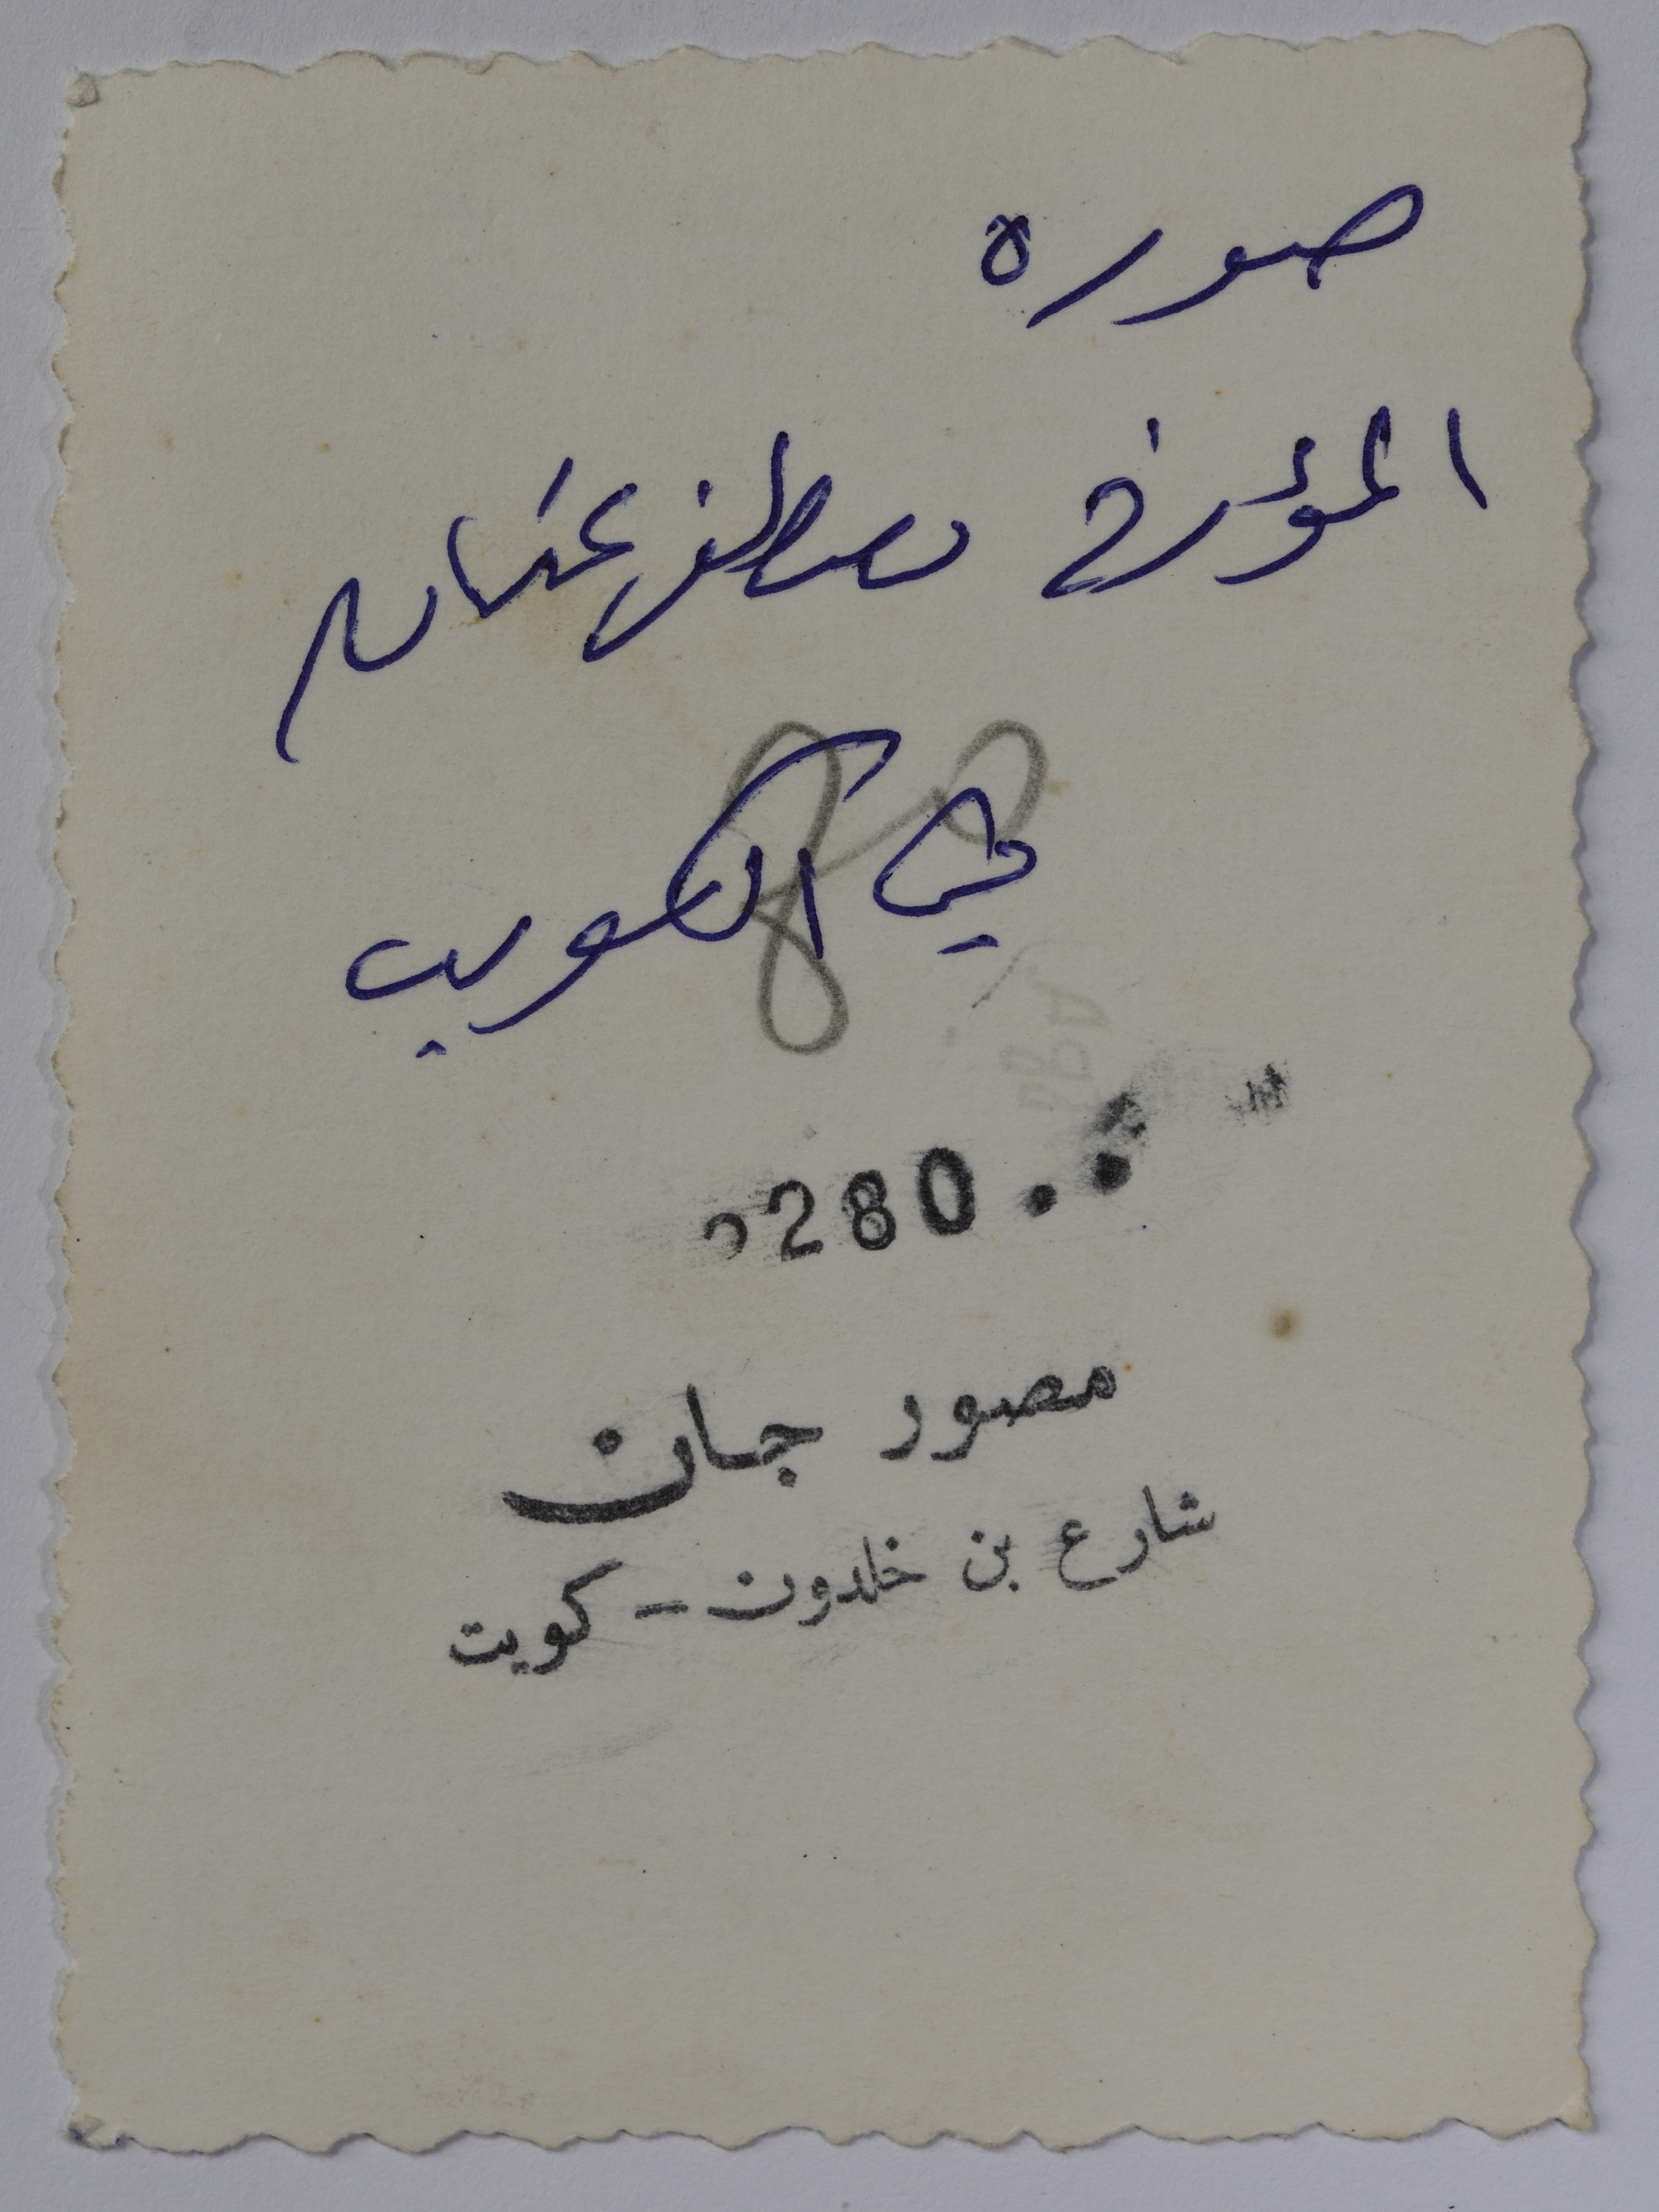 صورة
المؤرخ مصطفى عثمان
في الكويت
280
مصور جان
شارع بن خلدون - كويت